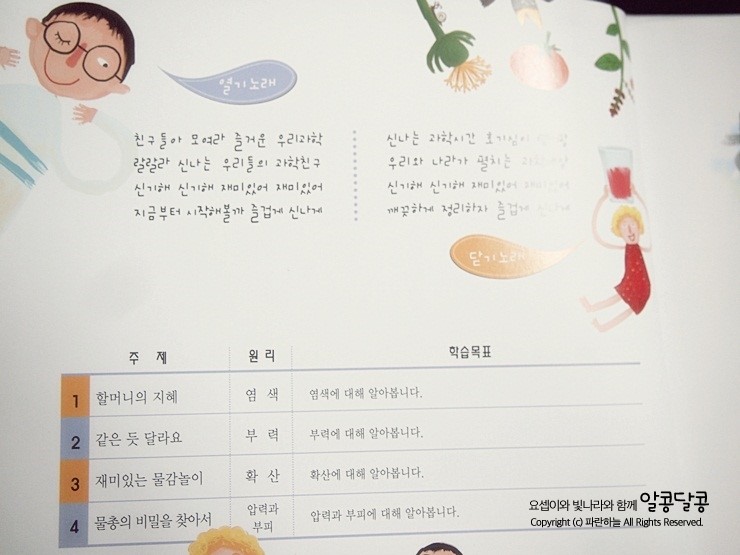 열기노래
친구들아 모여라 즐거운 우리과학
랄랄라 신나는 우리들의 과학친구
신기해 신기해 재미있어 재미있어
지금부터 시작해볼까 즐겁게 신나게
신나는 과학시간 호기심이
우리와 나라가 펼치는 과학
신기해 신기해 재미있어 재미있어
깨끗하게 정리하자 즐겁게 신나게
닫기노래
주 제 원 리 학습목표
1 할머니의 지혜 염 색 염색에 대해 알아봅니다.
2 같은 듯 달라요 부 력 부력에 대해 알아봅니다.
3 재미있는 물감놀이 확 산 확산에 대해 알아봅니다.
4 물총의 비밀을 찾아서 압력과 부피 압력과 부피에 대해 알아봅니다.
요셉이와 빛나라와 함께 알콩달콩
Copyright (c) 파란하늘 All Rights Reserved.